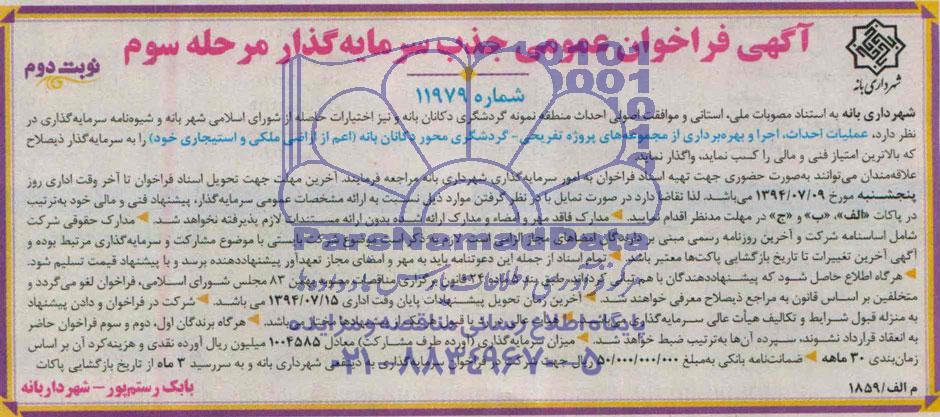 آگهی فراخوان عمومی جذب سرمایه‌گذار مرحله سوم
نوبت دوم
شهرداری بانه
شماره ۱۱۹۷۹
شهرداری بانه به استناد مصوبات ملی، استانی و موافقت اصولی احداث منطقه نمونه گردشگری دکانان بانه و نیز اختیارات حاصله از شورای اسلامی شهر بانه و شیوه‌نامه سرمایه‌گذاری در
نظر دارد، عملیات احداث، اجرا و بهره‌برداری از مجموعه‌های پروژه تفریحی - گردشگری محور دکانان بانه (اعم از اراضی ملکی و استیجاری خود) را به سرمایه‌گذار ذیصلاح
که بالاترین امتیاز فنی و مالی را کسب نماید، واگذار نماید.
علاقه‌مندان می‌توانند به‌صورت حضوری جهت تهیه اسناد فراخوان به امور سرمایه‌گذاری شهرداری بانه مراجعه فرمایند. آخرین مهلت جهت تحویل اسناد فراخوان تا آخر وقت اداری روز
پنجشنبه مورخ ۱۳۹۴/۰۷/۰۹ می‌باشد. لذا تقاضا دارد در صورت تمایل با در نظر گرفتن موارد ذیل نسبت به ارائه مشخصات عمومی سرمایه‌گذار، پیشنهاد فنی و مالی خود به‌ترتیب
در پاکات «الف»، «ب» و «ج» در مهلت مدنظر اقدام نمایید. مدارک فاقد مهر و امضاء و مدارک ارائه شده بدون ارائه مستندات لازم پذیرفته نخواهد شد. مدارک حقوقی شرکت
شامل اساسنامه شرکت و آخرین روزنامه رسمی مبنی بر دارندگان امضاهای مجاز الزامی است. لازم به ذکر است موضوع شرکت بایستی با موضوع مشارکت و سرمایه‌گذاری مرتبط بوده و
آگهی آخرین تغییرات تا تاریخ بازگشایی پاکت‌ها معتبر باشد. تمام اسناد از جمله این دعوتنامه باید به مهر و امضای مجاز تعهدآور پیشنهاددهنده برسد و با پیشنهاد قیمت تسلیم شود.
هرگاه اطلاع حاصل شود که پیشنهاددهندگان با هم تبانی کرده‌اند طبق بند ماده ۲۴ قانون برگزاری مناقصات مصوب بهمن ۸۳ مجلس شورای اسلامی، فراخوان لغو می‌گردد و
متخلفین بر اساس قانون به مراجع ذیصلاح معرفی خواهند شد. آخرین زمان تحویل پیشنهادات پایان وقت اداری ۱۳۹۴/۰۷/۱۵ می باشد. شرکت در فراخوان و دادن پیشنهاد
به منزله قبول شرایط و تکالیف هیأت عالی سرمایه‌گذاری می‌باشد. هیأت عالی در رد یا قبول هر یک از پیشنهادها مختار می‌باشد. هرگاه برندگان اول، دوم و سوم فراخوان حاضر
به انعقاد قرارداد نشوند، سپرده آن‌ها به‌ترتیب ضبط خواهد شد. میزان سرمایه‌گذاری (آورده طرف مشارکت) معادل ۱۰۰۴۵۸۵ میلیون ریال آورده نقدی و هزینه‌کرد آن بر اساس
زمان‌بندی ۳۰ ماهه ضمانت‌نامه بانکی به‌مبلغ ریال جهت شرکت در فراخوان سرمایه‌گذاری به ذینفعی شهرداری بانه و به سررسید ۳ ماه از تاریخ بازگشایی پاکات
م الف/۱۸۵۹
بابک رستم‌پور - شهردار بانه
ParsNamadData
پایگاه اطلاع رسانی مناقصه و مزایده
۰۲۱-۸۸۳۴۹۶۷۰-۵